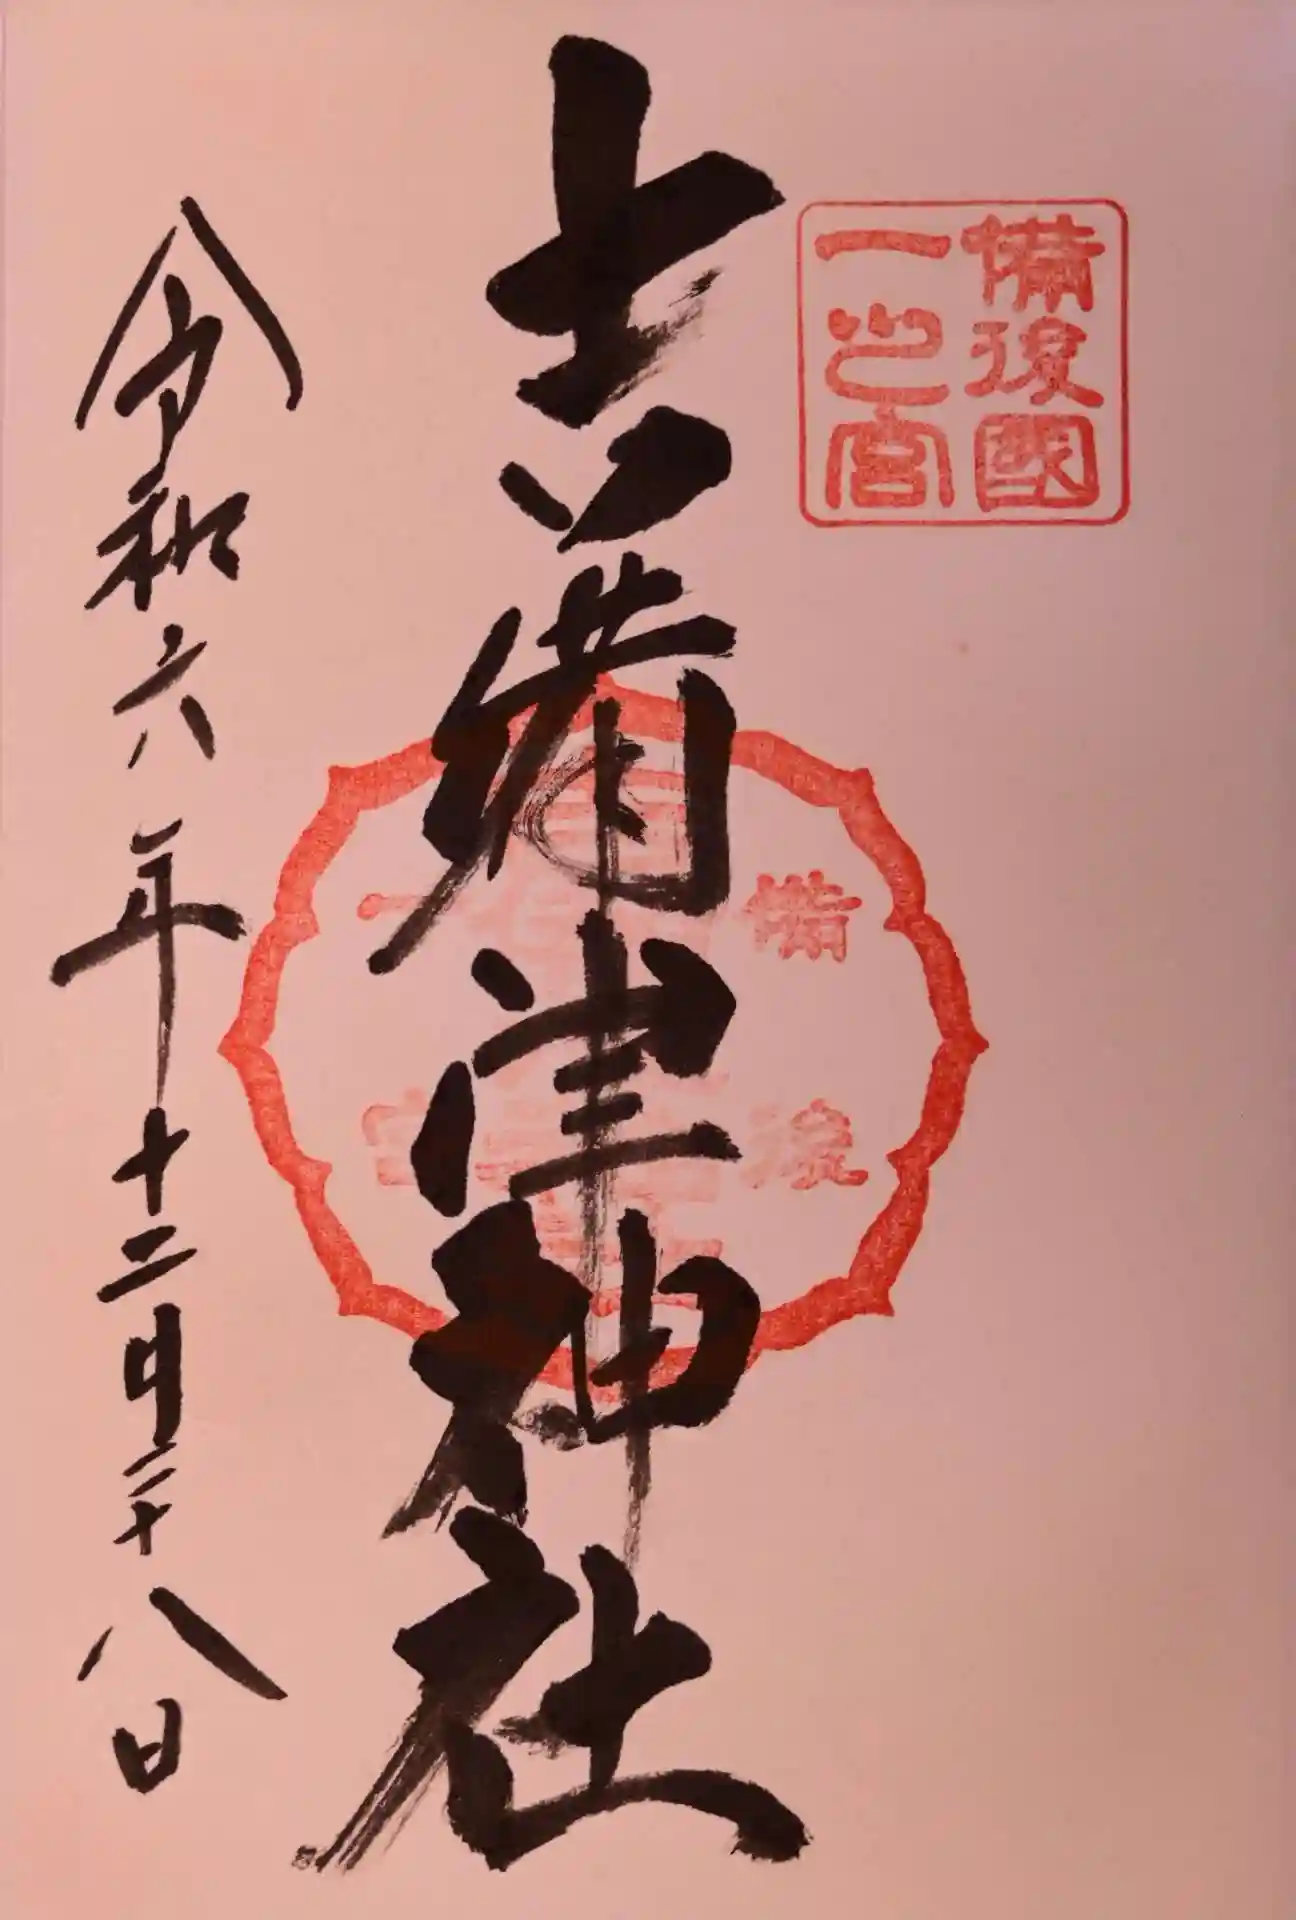 備後國
一之宮
吉備津神社
備後
一宮
令和六年十二月二十八日